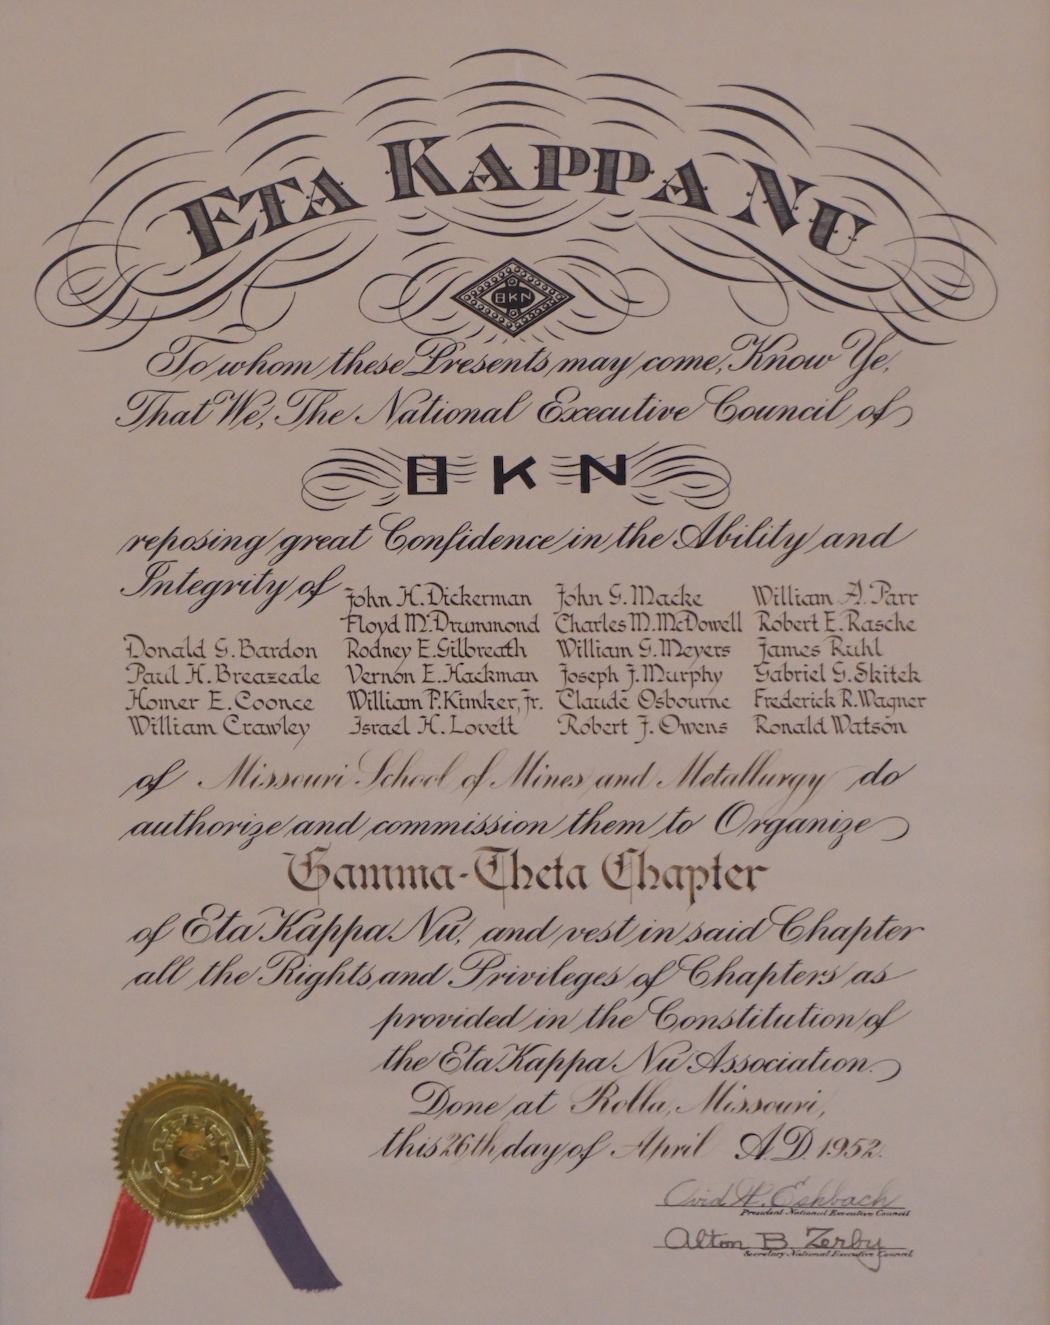 ETA KAPPA NU
HKN
To whom these Presents may come, Know Ye,
That We, The National Executive Council of
H K N
reposing great Confidence in the Ability and
Integrity of
Donald G. Bardon
Paul H. Breazeale
Homer E. Coonce
William Crawley
John H. Dickerman
Floyd M. Drummond
Rodney E. Gilbreath
Vernon E. Hackman
William P. Kimker, Jr.
Israel H. Lovett
John G. Macke
Charles M. McDowell
William G. Meyers
Joseph J. Murphy
Claude Osbourne
Robert J. Owens
William A. Parr
Robert E. Rasche
James Ruhl
Gabriel G. Skitek
Frederick R. Wagner
Ronald Watson
of Missouri School of Mines and Metallurgy do
authorize and commission them to Organize
Gamma-Theta Chapter
of Eta Kappa Nu, and vest in said Chapter
all the Rights and Privileges of Chapters as
provided in the Constitution of
the Eta Kappa Nu Association.
Done at Rolla, Missouri,
this 26th day of April A.D. 1952.
Ovid W. Eshbach
President National Executive Council
Alton B. Zerby
Secretary National Executive Council